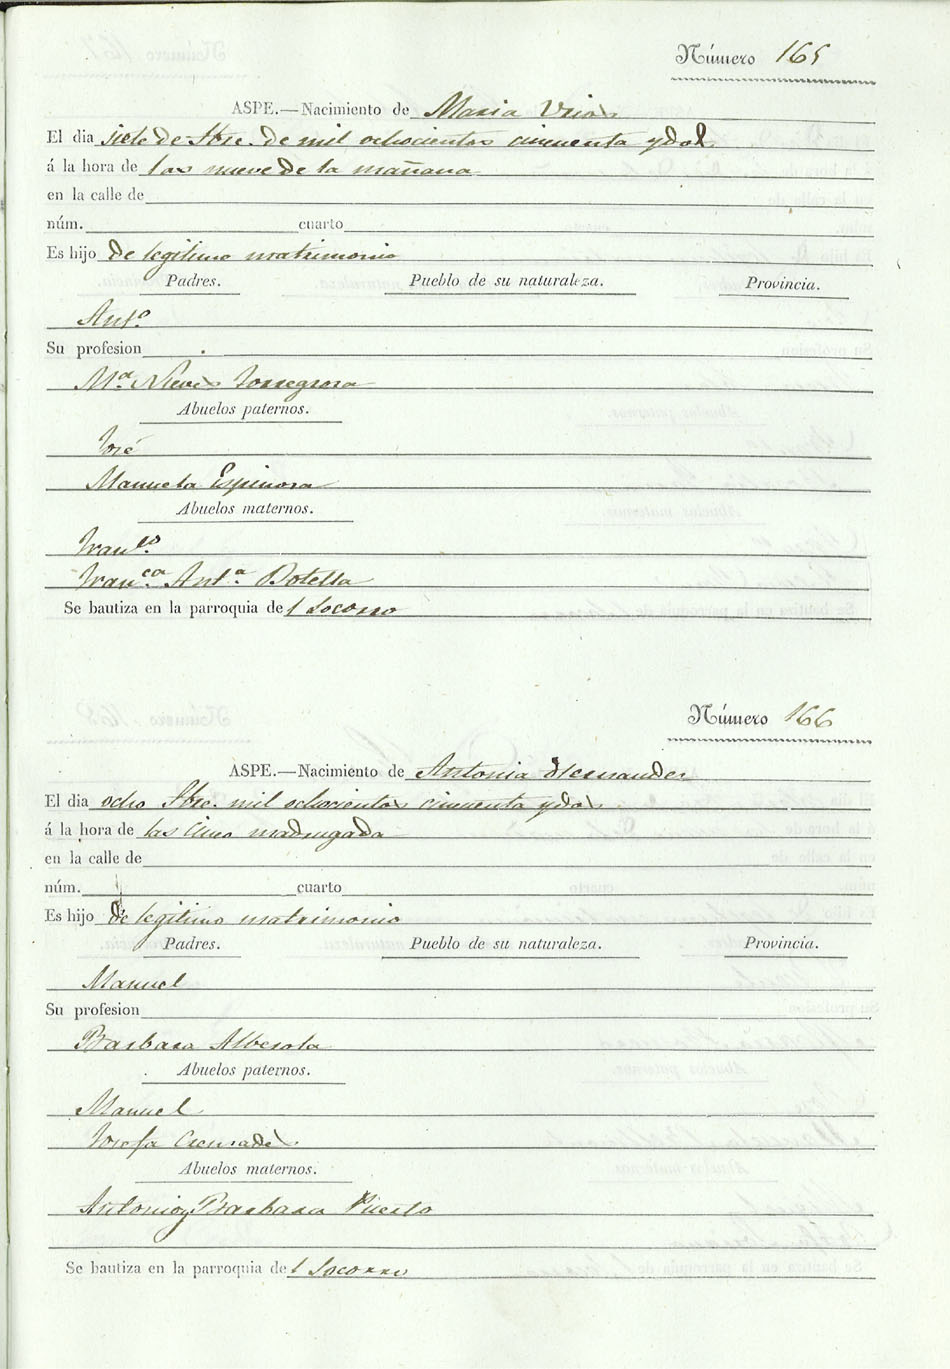 Número 165
ASPE.—Nacimiento de Maria Urios
El dia siete de Stbre. de mil ochocientos cincuenta y dos
á la hora de las nueve de la mañana
en la calle de
núm. cuarto
Es hijo de legitimo matrimonio
Padres. Pueblo de su naturaleza. Provincia.
Ant.º
Su profesion
M.ª Nieves Torregrosa
Abuelos paternos.
José
Manuela Espinosa
Abuelos maternos.
Fran.co
Fran.ca Ant.ª Botella
Se bautiza en la parroquia del Socorro
Número 166
ASPE.—Nacimiento de Antonia Hernandez
El dia ocho Stbre. mil ochocientos cincuenta y dos
á la hora de las cinco madrugada
en la calle de
núm. cuarto
Es hijo de legitimo matrimonio
Padres. Pueblo de su naturaleza. Provincia.
Manuel
Su profesion
Barbara Alberola
Abuelos paternos.
Manuel
Josefa
Abuelos maternos.
Antonio y Barbara Puerto
Se bautiza en la parroquia del Socorro